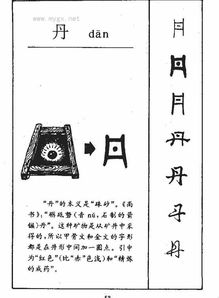 www.mygx.net
丹 dān
“丹”的本义是“珠砂”。《尚
书》:“砺砥砮(音 nǔ,石制的箭
镞)丹”。这种矿物是从矿井中采
得的,所以甲骨文和金文的字形
都是在井形中间加一圆点。引申
为“红色”(比“赤”色浅)和“精炼
的成药”。